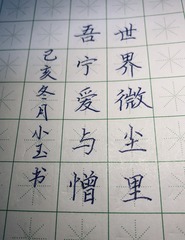 世界微尘里
吾宁爱与憎
己亥冬月小玉书